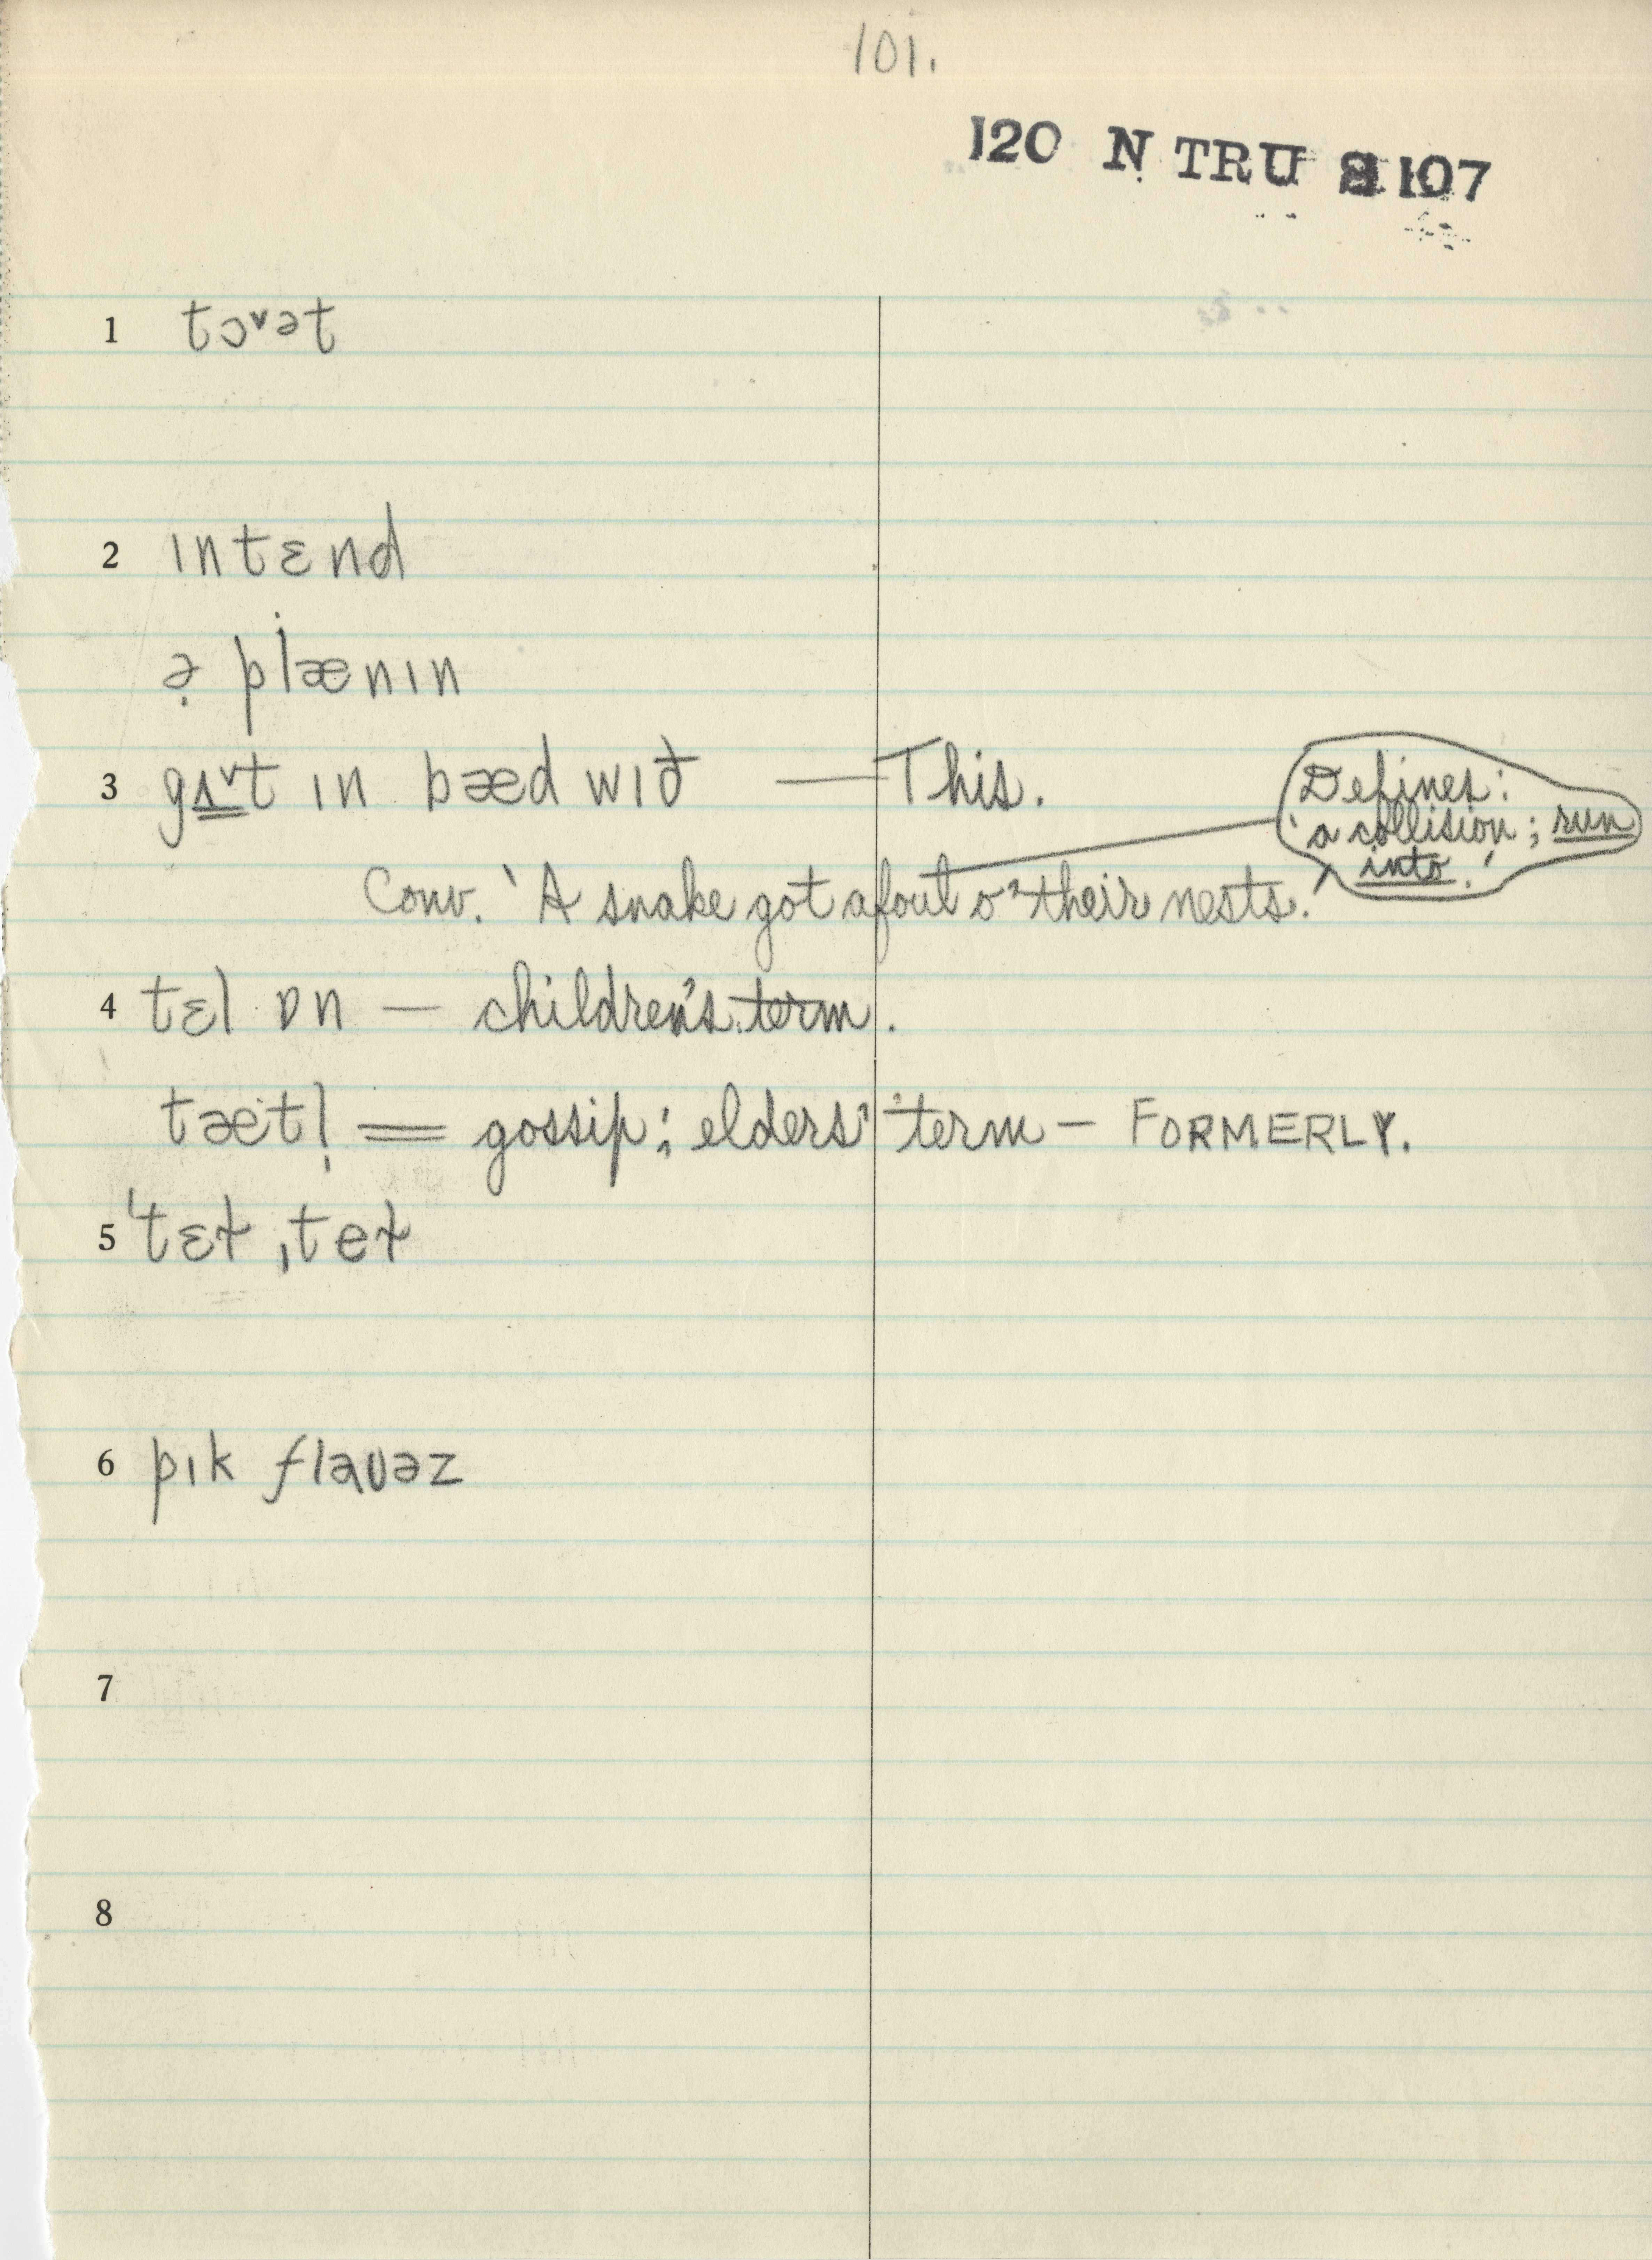 101.
120 N TRU S 107
1 tɔˇət
2 ɪntɛnd
ə̣ plænɪn
3 gɪˇt ɪn bæd wɪð — This.
Defines: 'a collision; run into.'
Conv. 'A snake got afoul o' their nests.'
4 tɛl ɒn — children's term.
tætl̩ = gossip; elders' term — FORMERLY.
5 ˈtɛɫ ˌteɫ
6 pɪk flaʊəz
7
8